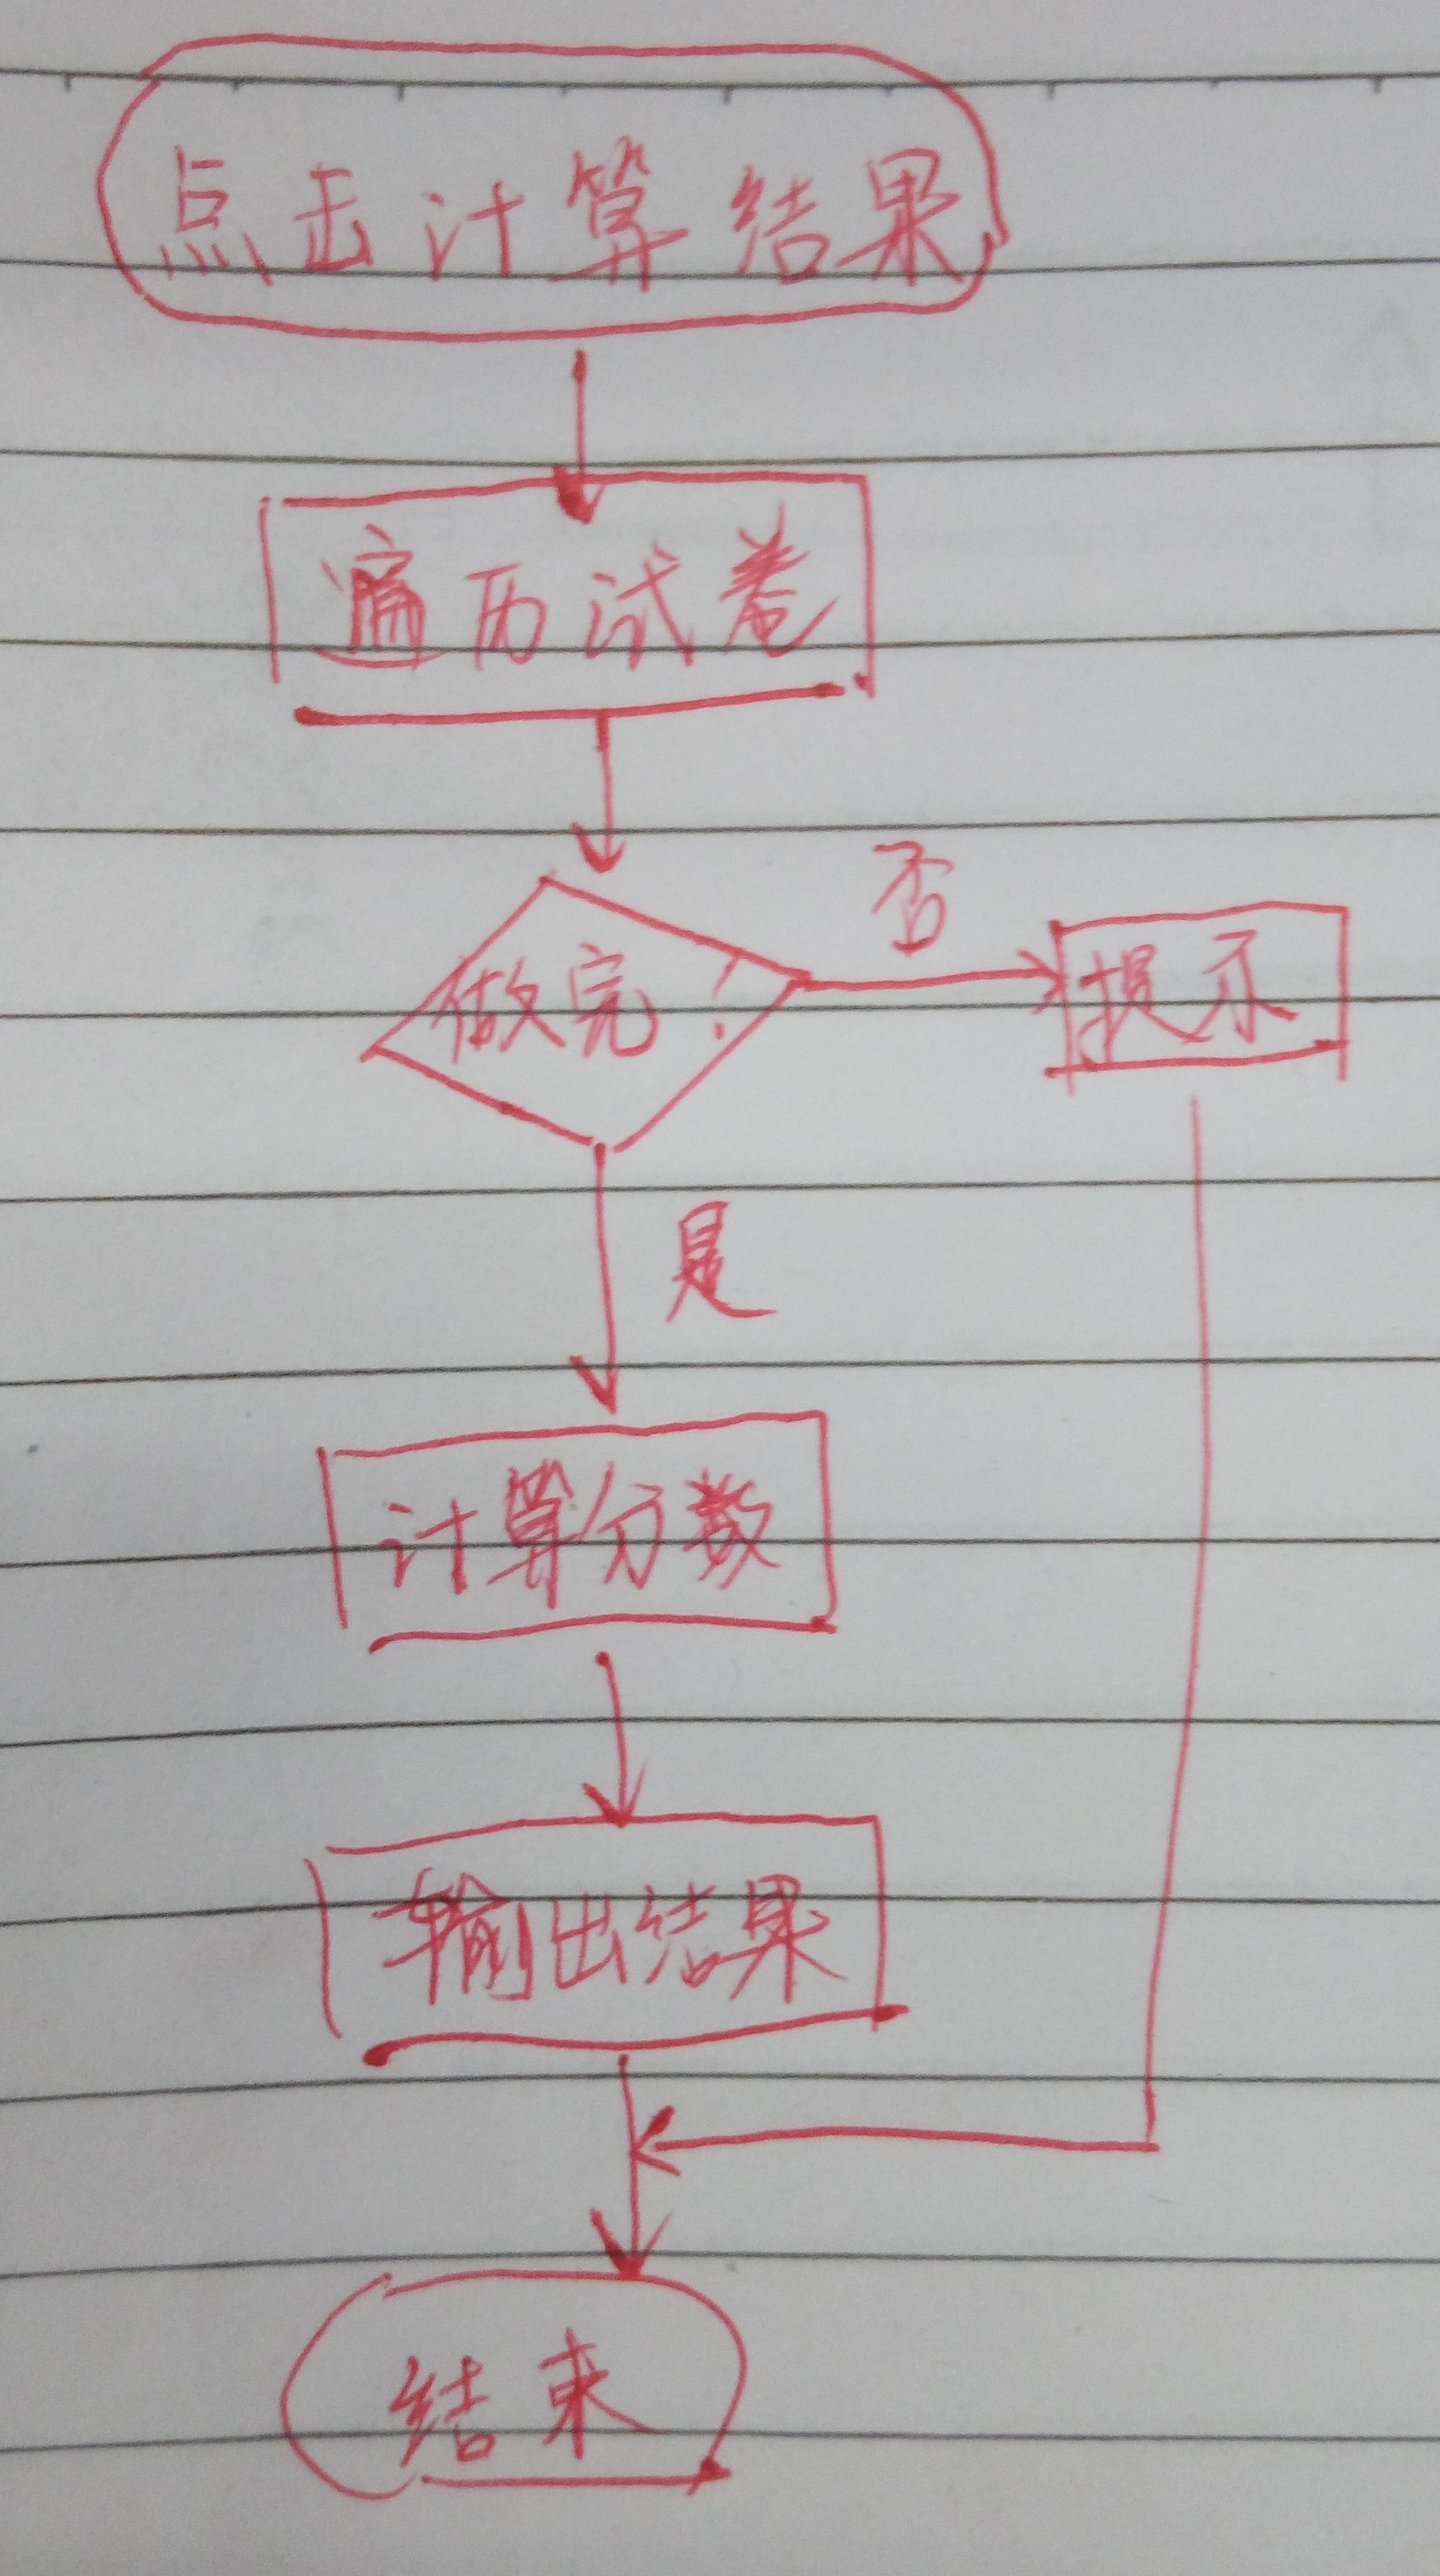 点击计算结果
遍历试卷
做完?
否
提示
是
计算分数
输出结果
结束